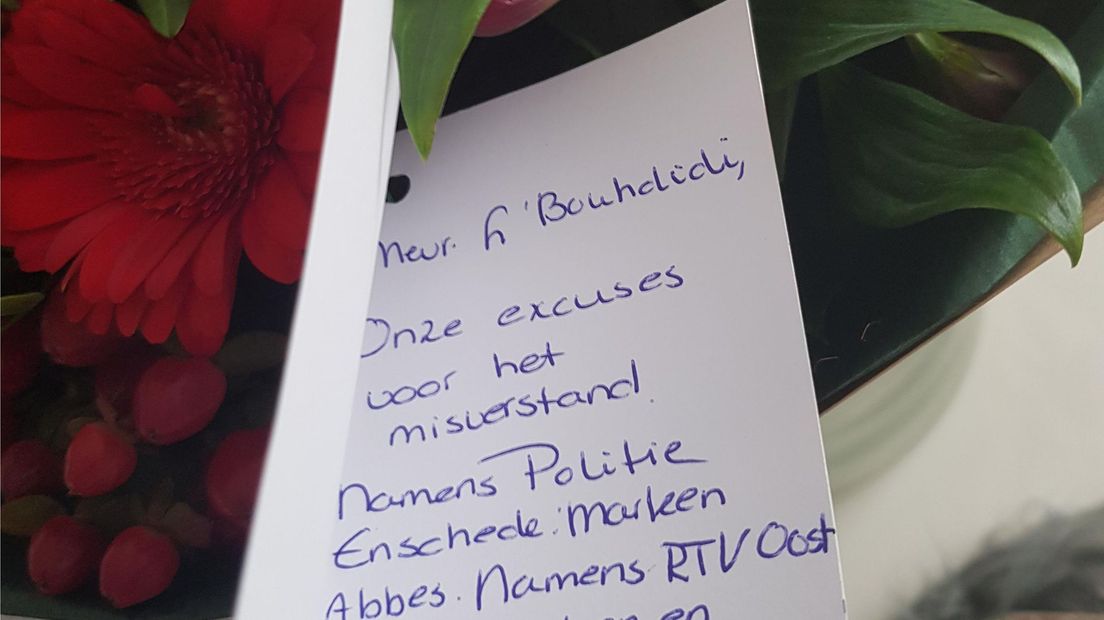 Meur. h 'Bouhdidi,
Onze excuses
voor het
misverstand.
Namens Politie
Enschede: Marleen
Abbes. Namens RTV Oost
en